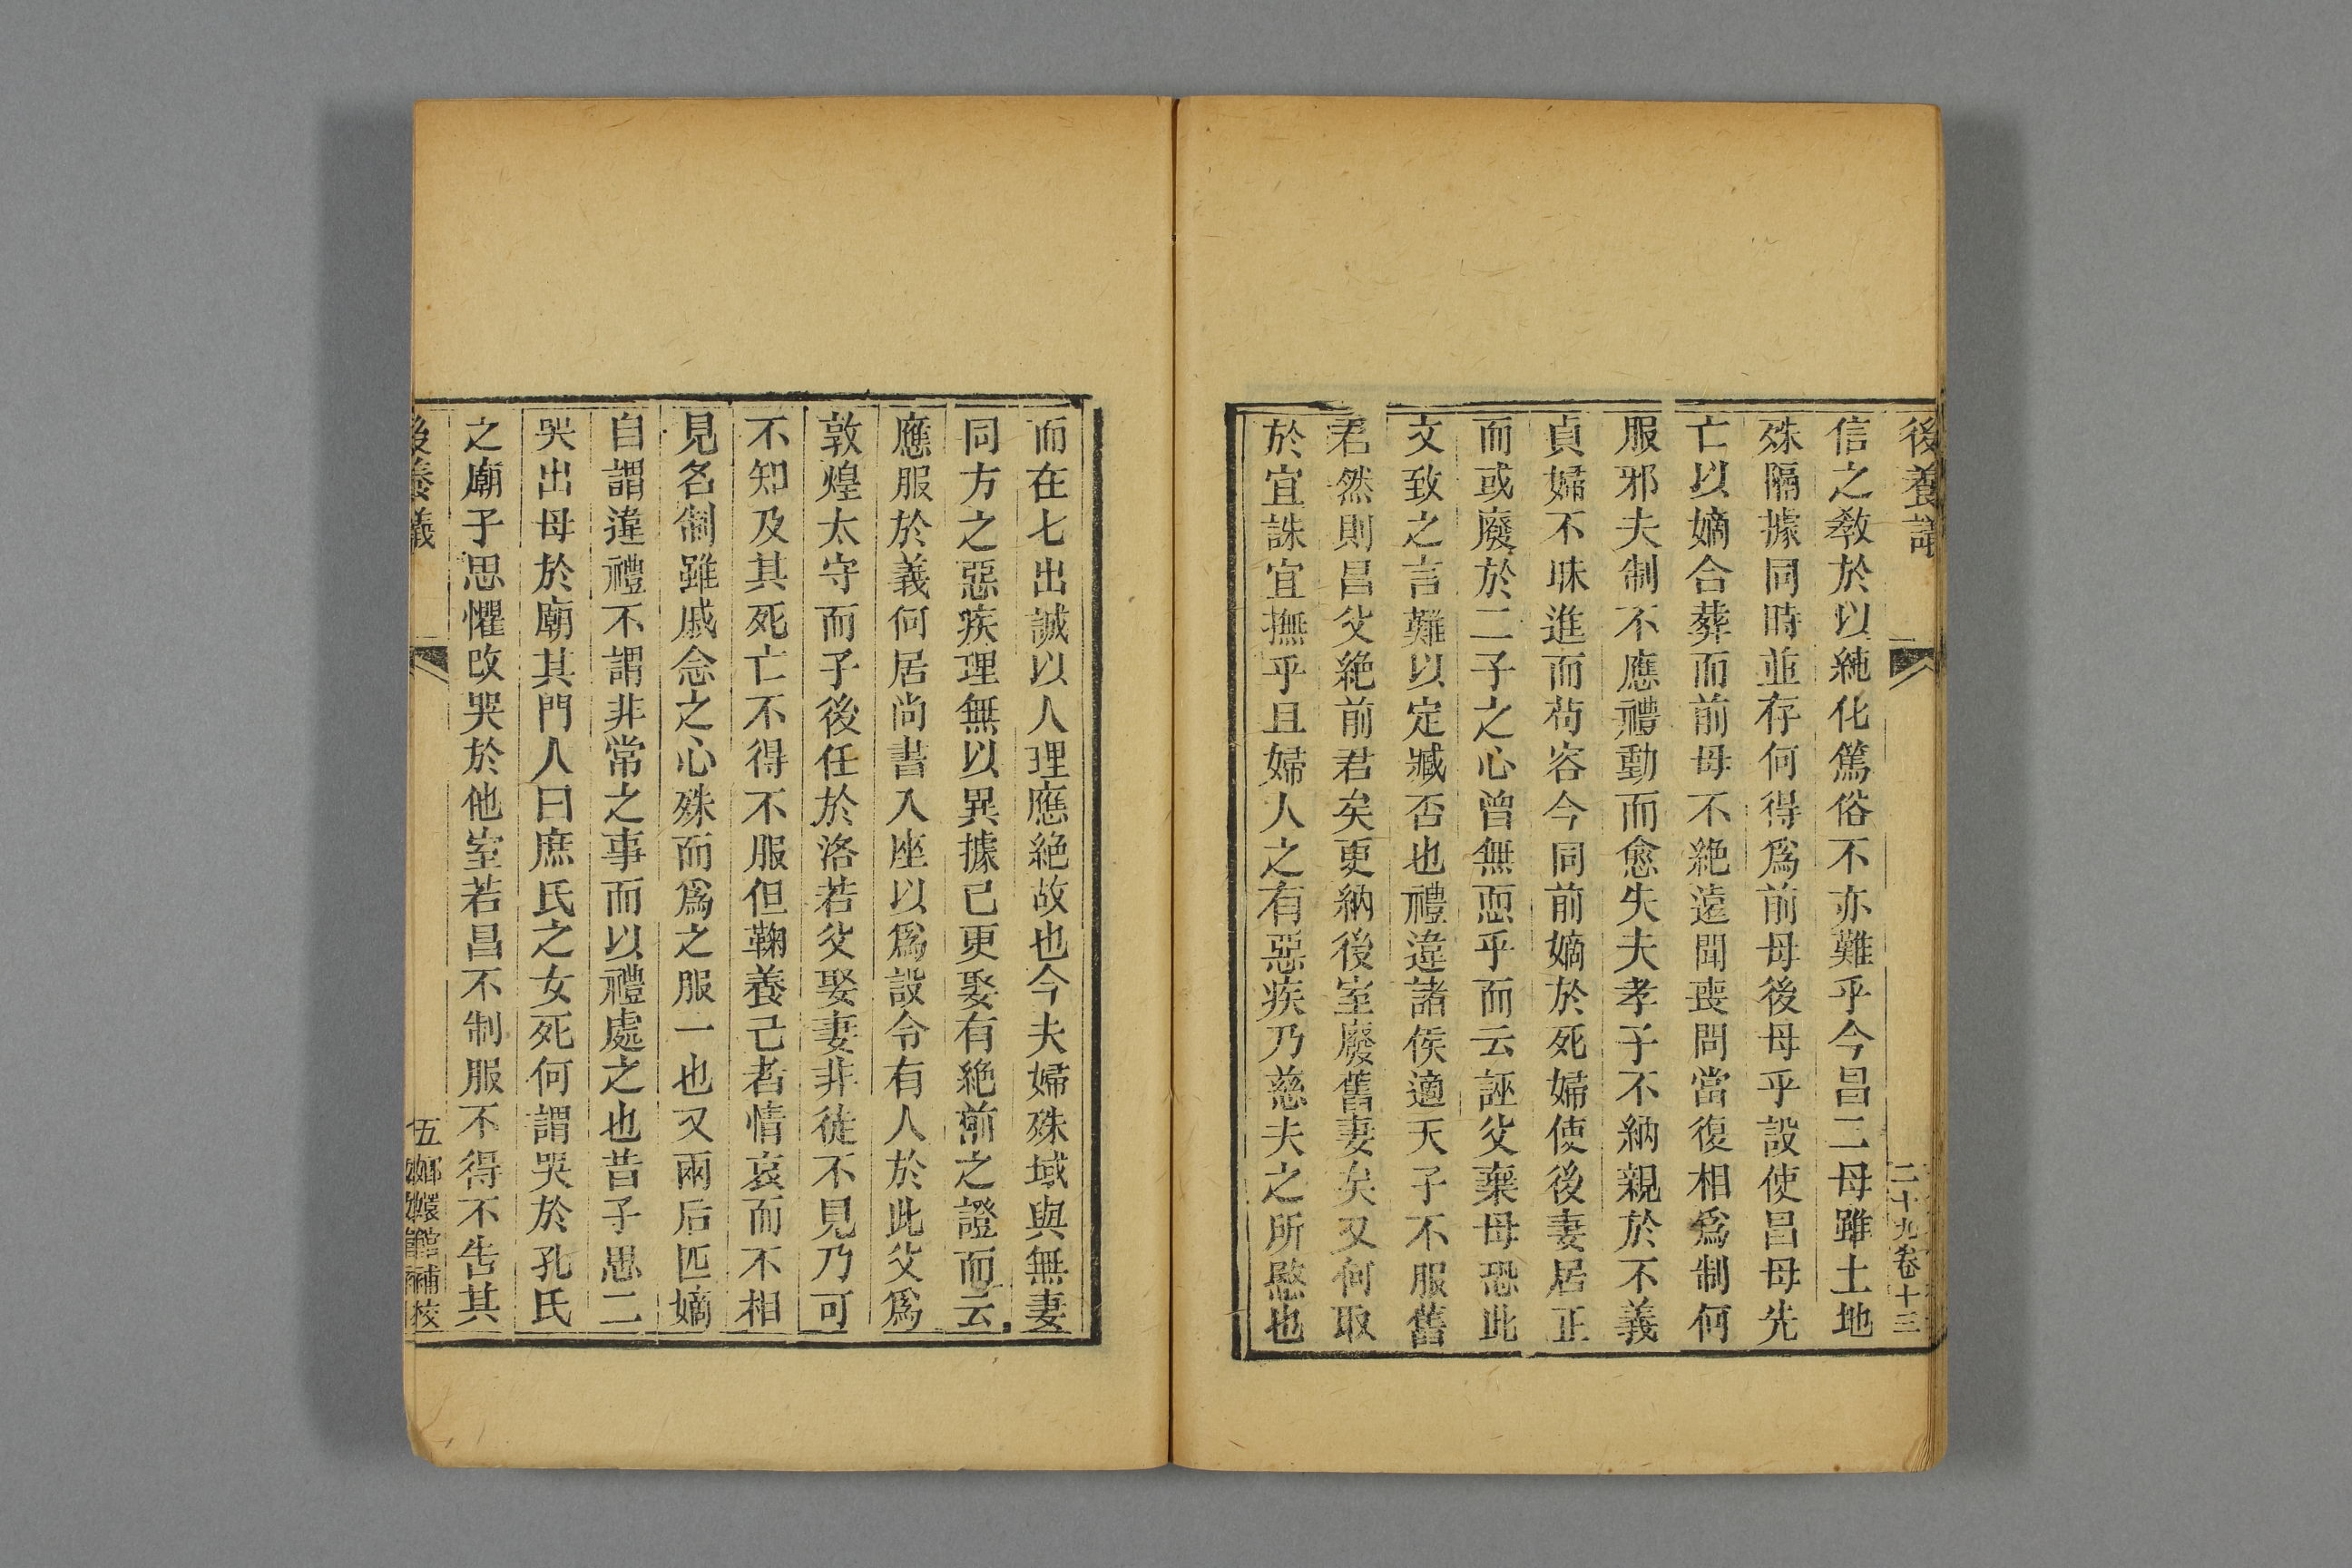 後養議
二十九卷十三
信之敎於以純化篤俗不亦難乎今昌二母雖土地
殊隔據同時並存何得爲前母後母乎設使昌母先
亡以嫡合葬而前母不絶遠聞喪問當復相爲制何
服邪夫制不應禮動而愈失夫孝子不納親於不義
貞婦不昧進而苟容今同前嫡於死婦使後妻居正
而或廢於二子之心曾無恧乎而云誣父棄母恐此
文致之言難以定臧否也禮違諸侯適天子不服舊
君然則昌父絶前君矣更納後室廢舊妻矣又何取
於宜誅宜撫乎且婦人之有惡疾乃慈夫之所愍也
而在七出誠以人理應絶故也今夫婦殊域與無妻
同方之惡疾理無以異據已更娶有絶前之證而云
應服於義何居尚書入座以爲設令有人於此父爲
敦煌太守而子後任於洛若父娶妻非徒不見乃可
不知及其死亡不得不服但鞠養己者情哀而不相
見名制雖戚念之心殊而爲之服一也又兩后匹嫡
自謂違禮不謂非常之事而以禮處之也昔子思二
哭出母於廟其門人曰庶氏之女死何謂哭於孔氏
之廟子思懼改哭於他室若昌不制服不得不告其
後養議
五
嫏嬛館補校